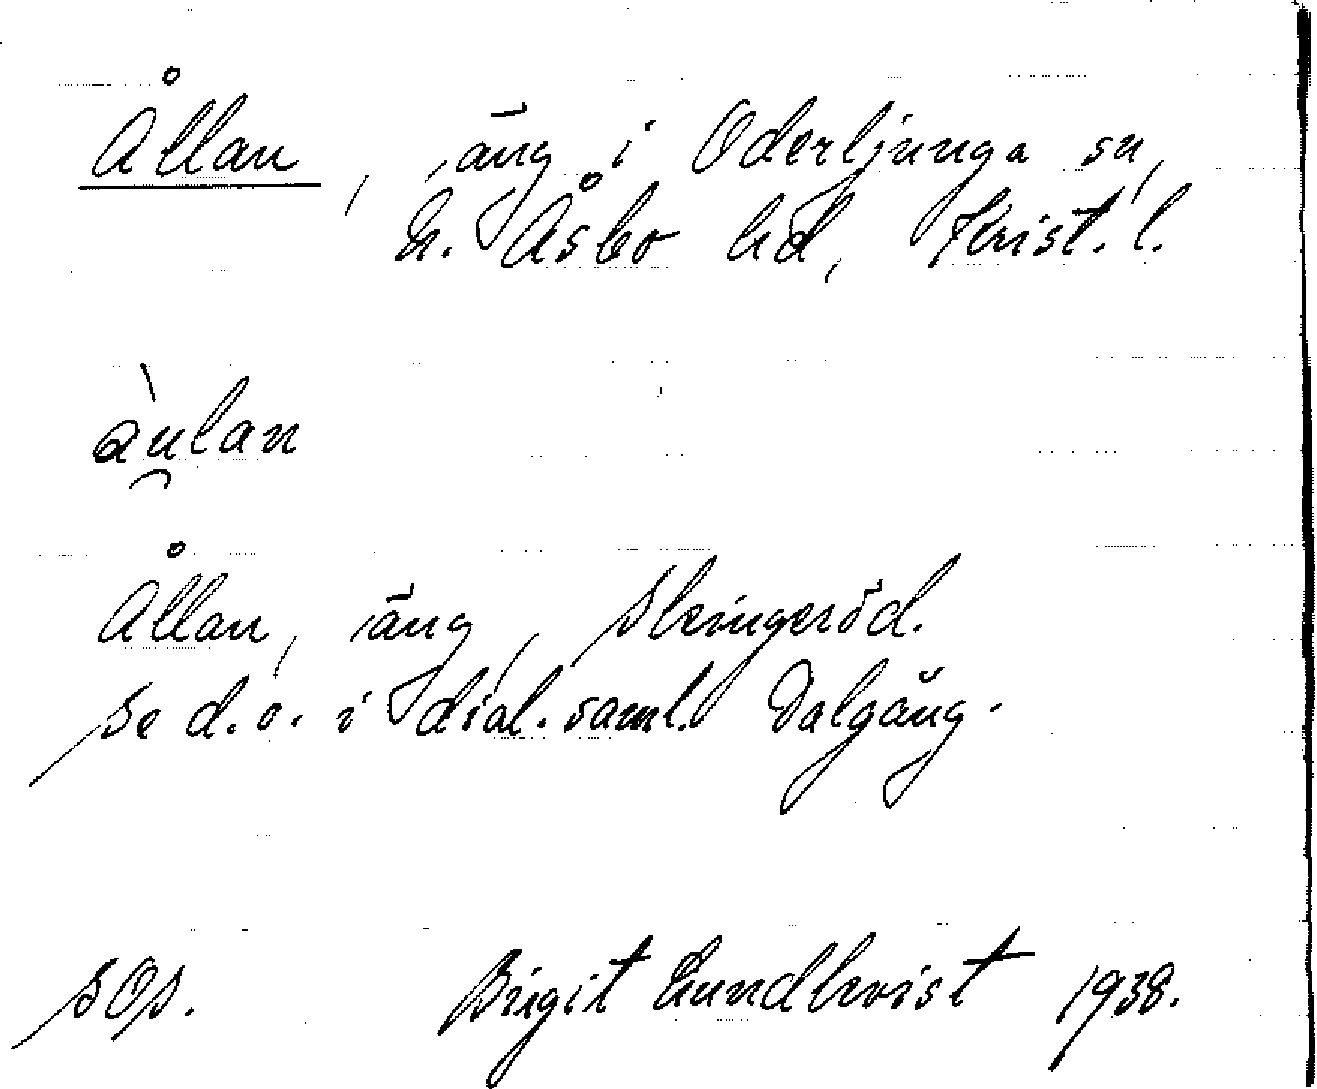 Ållan, äng i Oderljunga sn,
N. Åsbo hd, Krist. l.
àu̯lan
Ållan, äng, Slringeröd.
Se d.o. i dial. saml. Dalgäng.
SOp. Birgit Lundkvist 1938.